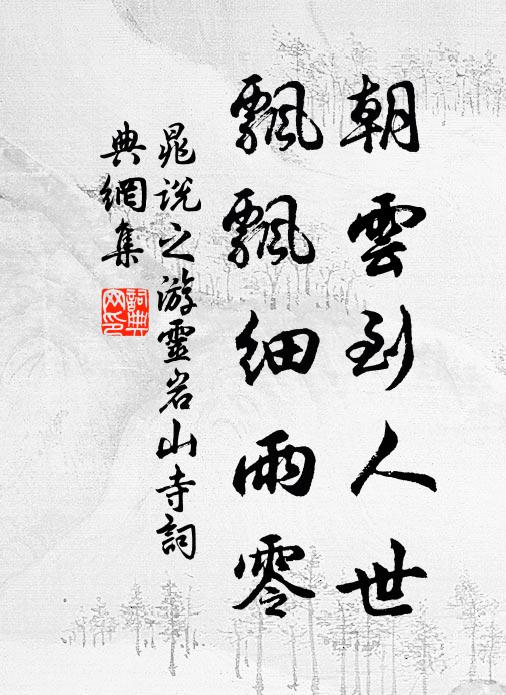 朝雲到人世
飄飄細雨零
晁說之游靈岩山寺詞
典網集
詞典網印